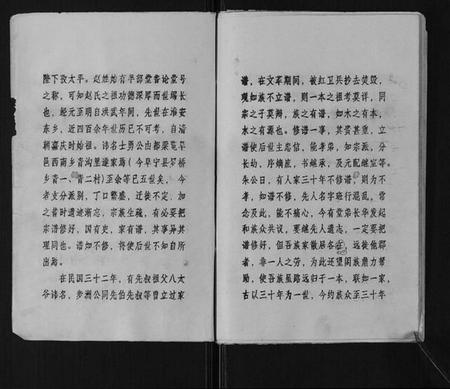 陛下致太平。赵姓始有半部堂鲁论堂号
之称，可知赵氏之祖功德深厚而世绵长
也，经元至明自洪武年间，先世在淮安
东乡，近四百余年世历已不可考，自清
朝嘉庆时始祖。讳名士勇公由
邑西南乡青沟里逮家焉（今阜宁县罗桥
乡青一、青二村）至余等已五世矣，今
者支分派别，丁口繁盛，迁徙不定，加
之昔时遗迹渐忘，宗族生疏，有必要把
宗谱修好，国有史，家有谱，其事异其
理同也。谱如不修，将使后世不知自所
出焉。
在民国三十二年，有先叔祖父八太
爷讳名，步洲公同先伯先叔等曾立过家
谱，在文革期间，被红卫兵抄去焚毁，
现如族不立谱，则一本之祖考莫详，同
宗之子莫辨，族之有谱，如木之有本，
水之有源也。修谱一事，其贵甚重，立
谱使后世主忠信，能孝弟，知宗派，分
长幼，序嫡庶，书继承，及元配继室等。
朱公曰，有人家三十年不修谱，则为不
孝，如谱不修，先人名字难行混乱，常
念及此，能不痛心，今有堂弟长华发起
和族众共议，要继先人遗志，一定要把
谱修好，但吾族家散居各，远徙他郡
者，非一人之劳，为此还望阖族鼎力帮
助，使吾族虽路远归于一本，联如一家，
古以三十年为一世，今约族众至三十年